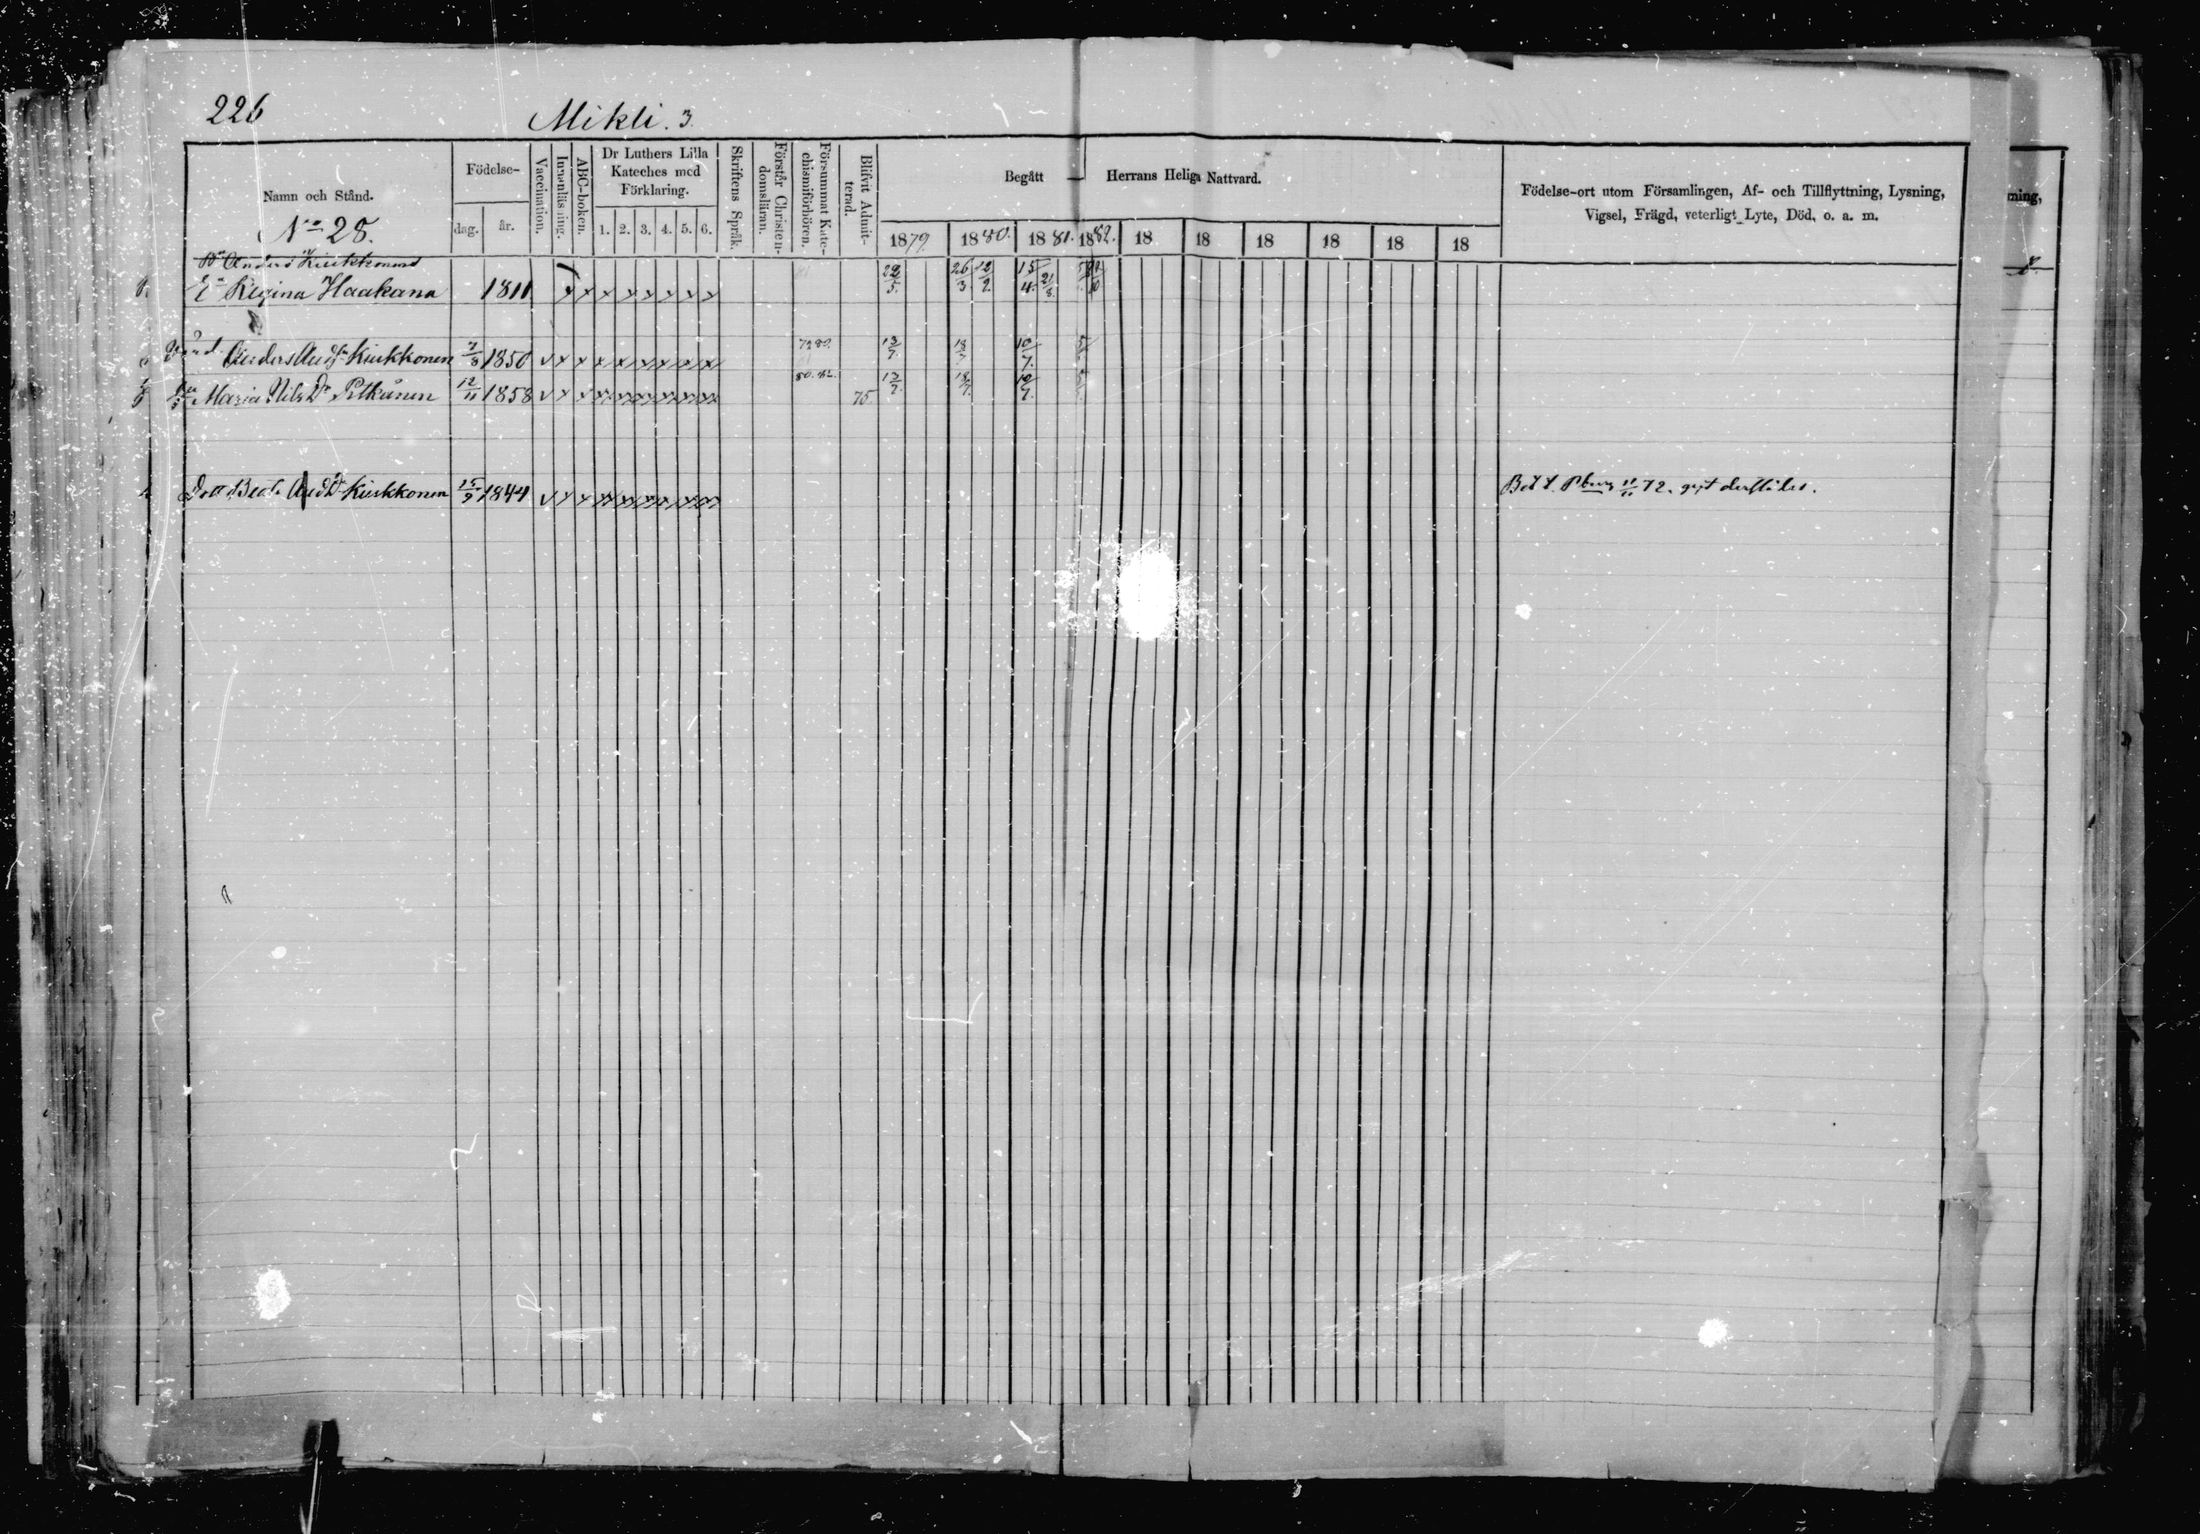 226
Mikli. 3.
Namn och Stånd.
No 28.
Födelse-
dag. år.
Vaccination.
Innanläsning.
ABC-boken.
Dr Luthers Lilla
Kateches med
Förklaring.
1. 2. 3. 4. 5. 6.
Skriftens Språk.
Förstår Christen-
domsläran.
Försummat Kate-
chismiförhören.
Blifvit Admit-
terad.
Begått Herrans Heliga Nattvard.
1879. 1880. 1881. 1882. 18 18 18 18 18 18
Födelse-ort utom Församlingen, Af- och Tillflyttning, Lysning,
Vigsel, Frägd, veterligt Lyte, Död, o. a. m.
ming,
Anders Kiukkonens
Ea Regina Haakana 1811 x x x x x x x x 26/3 15/4
Anders Andsn Kiukkonen 7/8 1850 v x x x x x x x x 13/7 18/7 10/7
Maria Nils Dr Pitkänen 12/11 1858 v x x x x x x x x 75 13/7 18/7 10/7
Dott Beata And Dr Kiukkonen 15/9 1844 v x x x x x x x x Bet t. Pburg 11/11 72. gift derstädes.